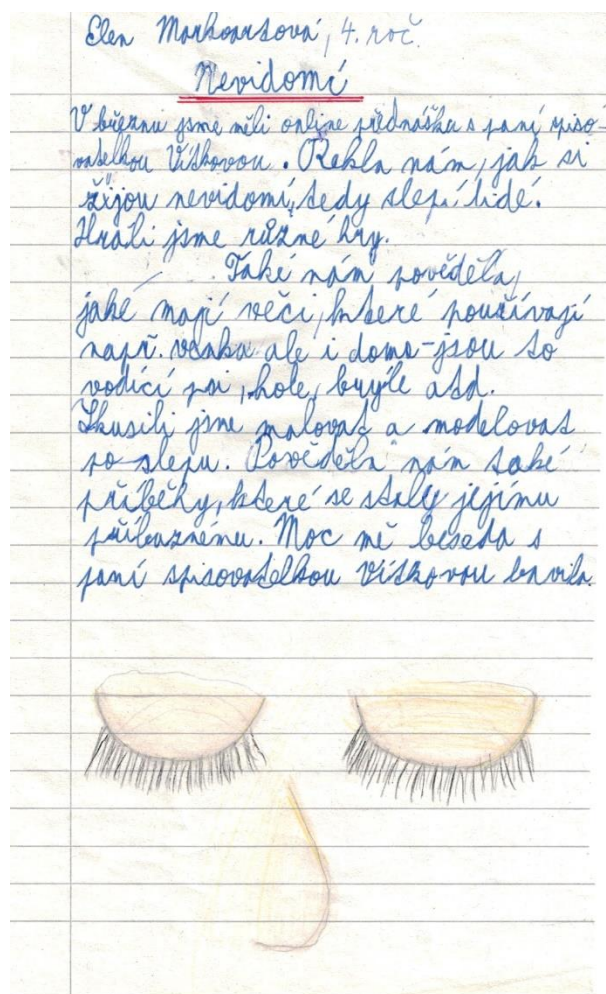 Elen Markvartová, 4. roč.
Nevidomí
V březnu jsme měli online přednášku s paní spiso-
vatelkou Vítkovou. Řekla nám, jak si
žijou nevidomí, tedy slepí lidé.
Hráli jsme různé hry.
Také nám pověděla,
jaké mají věci, které používají
např. venku ale i doma-jsou to
vodící psi, hole, brýle atd.
Zkusili jsme malovat a modelovat
po slepu. Pověděla nám také
příběhy, které se staly jejímu
příbuznému. Moc mě beseda s
paní spisovatelkou Vítkovou bavila.